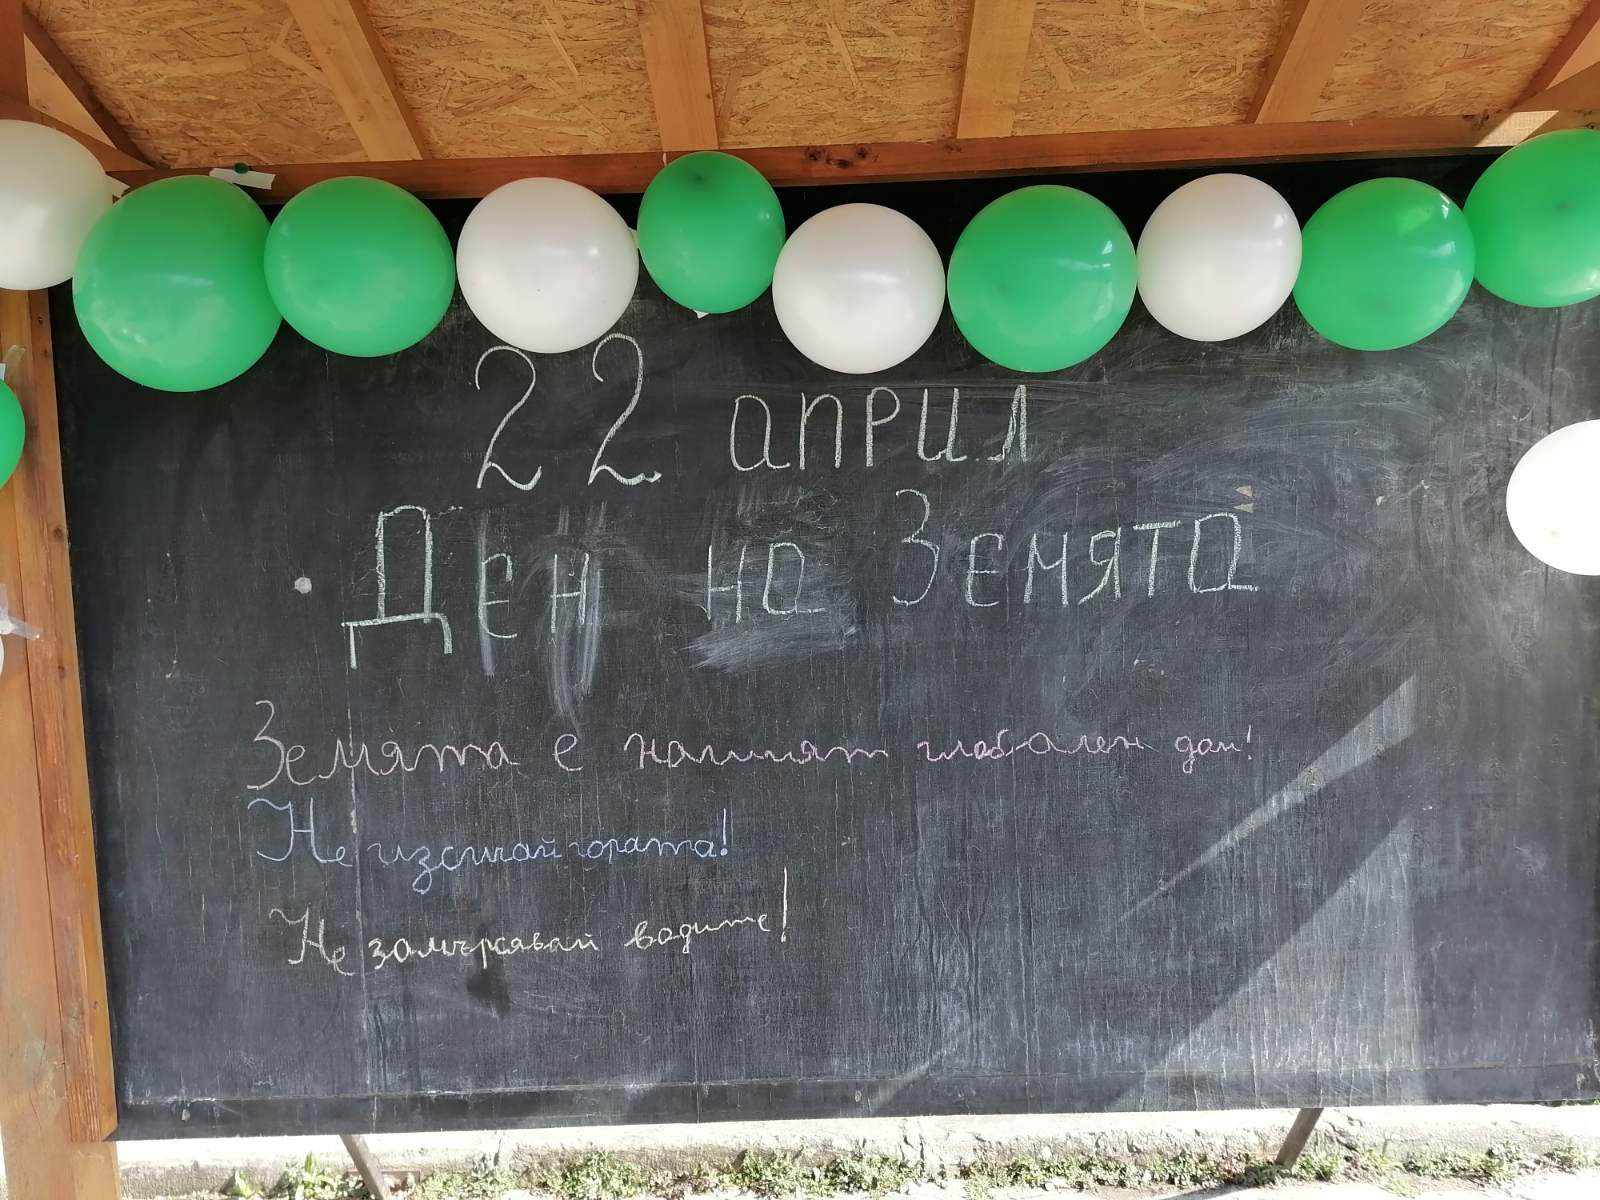 22 април
Ден на Земята
Земята е нашият глобален дом!
Не изсичай гората!
Не замърсявай водите!